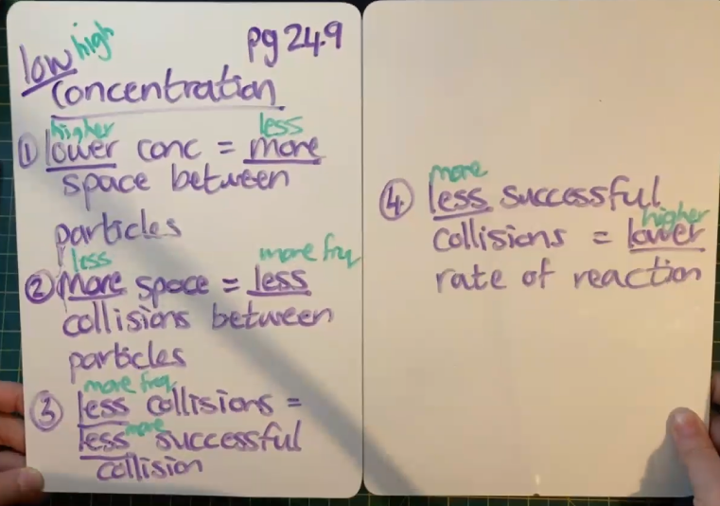 high
low
pg 24.9
Concentration
higher less
① lower conc = more
space between
particles
less more frq
② More space = less
collisions between
particles
more freq
③ less collisions =
less more successful
collision
more
④ less successful
higher
collisions = lower
rate of reaction